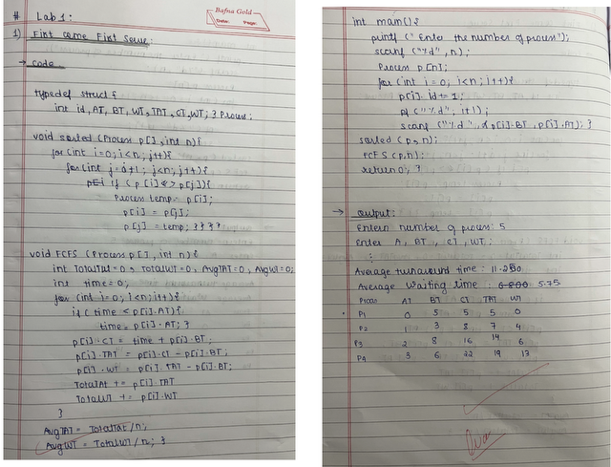 # Lab 1:
Bafna Gold
Date: Page:
1) First come First Serve:
→ Code
typedef struct {
int id, AT, BT, WT, TAT, CT, WT; } Process;
void sorted (Process p[], int n) {
for (int i=0; i<n; i++) {
for (int j=i+1; j<n; j++) {
if (p[i] > p[j]) {
Process temp = p[i];
p[i] = p[j];
p[j] = temp; } } } }
void FCFS (Process p[], int n) {
int TotalTat = 0, TotalWt = 0, AvgTAT = 0, AvgWt = 0;
int time = 0;
for (int i=0; i<n; i++) {
if (time < p[i].AT) {
time = p[i].AT; }
p[i].CT = time + p[i].BT;
p[i].TAT = p[i].CT - p[i].BT;
p[i].WT = p[i].TAT - p[i].BT;
TotalTAt += p[i].TAT
TotalWt += p[i].WT
}
AvgTAT = TotalTat/n;
AvgWT = TotalWT/n; }
int main() {
printf ("Enter the number of process");
scanf ("%d", n);
Process p[n];
for (int i=0; i<n; i++) {
p[i].id = 1;
pf ("%d", i+1);
scanf ("%d", &p[i].BT, p[i].AT); }
sorted (p,n);
FCFS (p,n);
return 0; }
→ Output:
Enter number of process: 5
Enter A, BT, CT, WT:
:
Average turnaround time: 11.250
Average Waiting time: 5.75
Process AT BT CT TAT WT
P1 0 5 5 5 0
P2 1 3 8 7 4
P3 2 8 16 14 6
P4 3 6 22 19 13